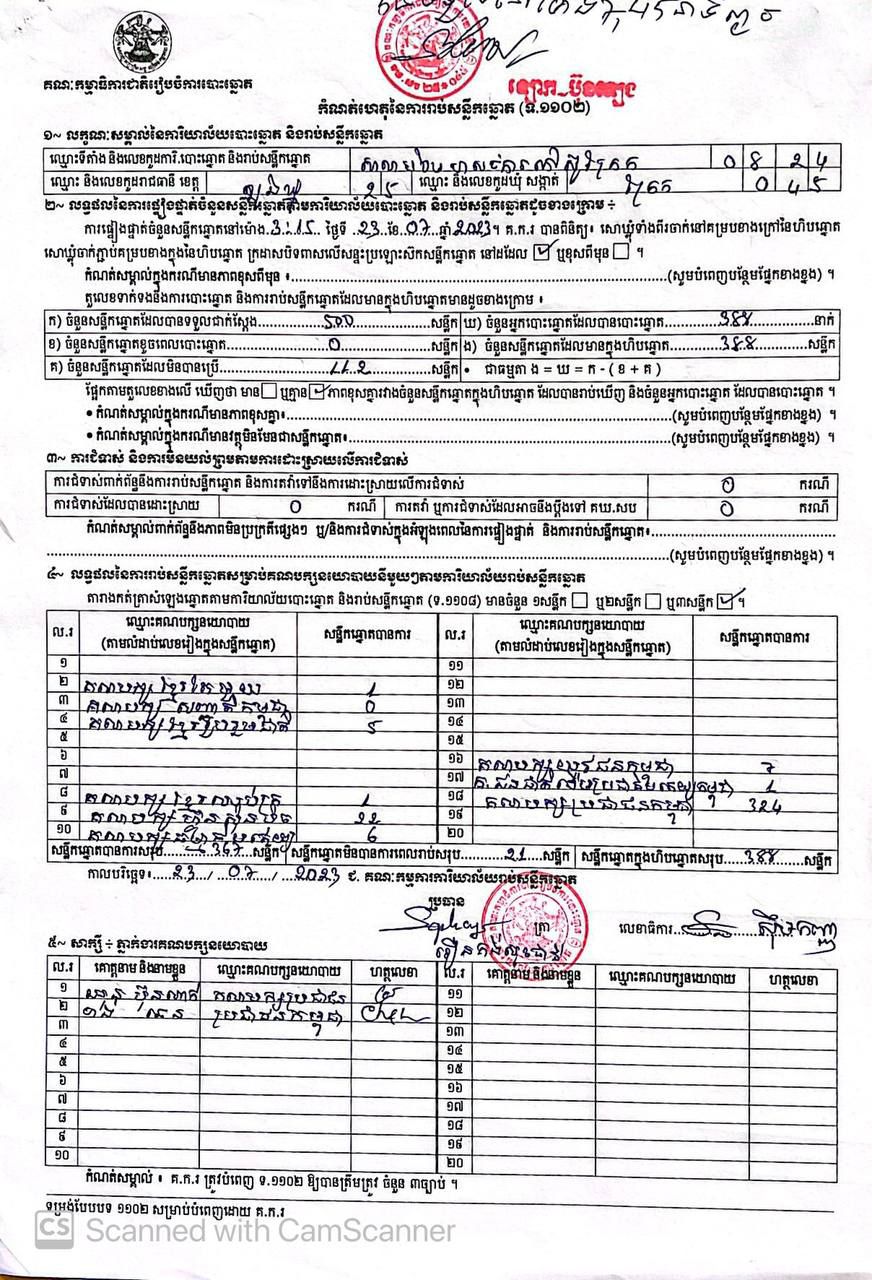 គណៈកម្មាធិការជាតិរៀបចំការបោះឆ្នោត
កំណត់ហេតុនៃការរាប់សន្លឹកឆ្នោត (ទ.១១០២)
១~ លក្ខណៈសម្គាល់នៃការិយាល័យបោះឆ្នោត និងរាប់សន្លឹកឆ្នោត
ឈ្មោះទីតាំង និងលេខកូដការិ.បោះឆ្នោត និងរាប់សន្លឹកឆ្នោត 0 8 2 4
ឈ្មោះ និងលេខកូដរាជធានី ខេត្ត 25 ឈ្មោះ និងលេខកូដឃុំ សង្កាត់ 0 4 5
២~ លទ្ធផលនៃការផ្ទៀងផ្ទាត់ចំនួនសន្លឹកឆ្នោតតាមការិយាល័យបោះឆ្នោត និងរាប់សន្លឹកឆ្នោតដូចខាងក្រោម ÷
ការផ្ទៀងផ្ទាត់ចំនួនសន្លឹកឆ្នោតនៅម៉ោង 3:15 ថ្ងៃទី 23 ខែ 07 ឆ្នាំ 2023។ គ.ក.រ បានពិនិត្យ៖ សោឃ្លុំទាំងពីរចាក់នៅគម្របខាងក្រៅនៃហិបឆ្នោត
សោឃ្លុំចាក់ភ្ជាប់គម្របខាងក្នុងនៃហិបឆ្នោត ក្រដាសបិទពាសលើសន្ទះប្រឡោះសិកសន្លឹកឆ្នោត នៅដដែល ☑ ឬខុសពីមុន ☐ ។
កំណត់សម្គាល់ក្នុងករណីមានភាពខុសពីមុន ៖ (សូមបំពេញបន្ថែមផ្នែកខាងខ្នង) ។
តួលេខទាក់ទងនឹងការបោះឆ្នោត និងការរាប់សន្លឹកឆ្នោតដែលមានក្នុងហិបឆ្នោតមានដូចខាងក្រោម ៖
ក) ចំនួនសន្លឹកឆ្នោតដែលបានទទួលជាក់ស្តែង 500 សន្លឹក ឃ) ចំនួនអ្នកបោះឆ្នោតដែលបានបោះឆ្នោត 388 នាក់
ខ) ចំនួនសន្លឹកឆ្នោតខូចពេលបោះឆ្នោត 0 សន្លឹក ង) ចំនួនសន្លឹកឆ្នោតដែលមានក្នុងហិបឆ្នោត 388 សន្លឹក
គ) ចំនួនសន្លឹកឆ្នោតដែលមិនបានប្រើ 112 សន្លឹក • ជាធម្មតា ង = ឃ = ក - ( ខ + គ )
ផ្អែកតាមតួលេខខាងលើ ឃើញថា មាន ☐ ឬគ្មាន ☑ ភាពខុសគ្នារវាងចំនួនសន្លឹកឆ្នោតក្នុងហិបឆ្នោត ដែលបានរាប់ឃើញ និងចំនួនអ្នកបោះឆ្នោត ដែលបានបោះឆ្នោត ។
• កំណត់សម្គាល់ក្នុងករណីមានភាពខុសគ្នា៖ (សូមបំពេញបន្ថែមផ្នែកខាងខ្នង) ។
• កំណត់សម្គាល់ក្នុងករណីមានវត្ថុមិនមែនជាសន្លឹកឆ្នោត៖ (សូមបំពេញបន្ថែមផ្នែកខាងខ្នង) ។
៣~ ការជំទាស់ និងការមិនយល់ព្រមតាមការដោះស្រាយលើការជំទាស់
ការជំទាស់ពាក់ព័ន្ធនឹងការរាប់សន្លឹកឆ្នោត និងការតវ៉ាទៅនឹងការដោះស្រាយលើការជំទាស់ 0 ករណី
ការជំទាស់ដែលបានដោះស្រាយ 0 ករណី ការតវ៉ា ឬការជំទាស់ដែលអាចនឹងប្តឹងទៅ គឃ.សប 0 ករណី
កំណត់សម្គាល់ពាក់ព័ន្ធនឹងភាពមិនប្រក្រតីផ្សេងៗ ឬ/និងការជំទាស់ក្នុងអំឡុងពេលនៃការផ្ទៀងផ្ទាត់ និងការរាប់សន្លឹកឆ្នោត៖
(សូមបំពេញបន្ថែមផ្នែកខាងខ្នង) ។
៤~ លទ្ធផលនៃការរាប់សន្លឹកឆ្នោតសម្រាប់គណបក្សនយោបាយនីមួយៗតាមការិយាល័យរាប់សន្លឹកឆ្នោត
តារាងកត់ត្រាសំឡេងឆ្នោតតាមការិយាល័យបោះឆ្នោត និងរាប់សន្លឹកឆ្នោត (ទ.១១០៨) មានចំនួន ១សន្លឹក ☐ ឬ២សន្លឹក ☐ ឬ៣សន្លឹក ☑ ។
ល.រ ឈ្មោះគណបក្សនយោបាយ (តាមលំដាប់លេខរៀងក្នុងសន្លឹកឆ្នោត) សន្លឹកឆ្នោតបានការ ល.រ ឈ្មោះគណបក្សនយោបាយ (តាមលំដាប់លេខរៀងក្នុងសន្លឹកឆ្នោត) សន្លឹកឆ្នោតបានការ
១ ១១
២ 1 ១២
៣ 0 ១៣
៤ 5 ១៤
៥ ១៥
៦ ១៦ គណបក្សយុវជនកម្ពុជា 7
៧ ១៧ 1
៨ 1 ១៨ គណបក្សប្រជាជនកម្ពុជា 324
៩ 22 ១៩
១០ 6 ២០
សន្លឹកឆ្នោតបានការសរុប 367 សន្លឹក សន្លឹកឆ្នោតមិនបានការពេលរាប់សរុប 21 សន្លឹក សន្លឹកឆ្នោតក្នុងហិបឆ្នោតសរុប 388 សន្លឹក
កាលបរិច្ឆេទ៖ 23 / 07 / 2023 ជ. គណៈកម្មការការិយាល័យរាប់សន្លឹកឆ្នោត
ប្រធាន
ត្រា លេខាធិការ
៥~ សាក្សី ÷ ភ្នាក់ងារគណបក្សនយោបាយ
ល.រ គោត្តនាម និងនាមខ្លួន ឈ្មោះគណបក្សនយោបាយ ហត្ថលេខា ល.រ គោត្តនាម និងនាមខ្លួន ឈ្មោះគណបក្សនយោបាយ ហត្ថលេខា
១ គណបក្សប្រជាជន ១១
២ ប្រជាជនកម្ពុជា ១២
៣ ១៣
៤ ១៤
៥ ១៥
៦ ១៦
៧ ១៧
៨ ១៨
៩ ១៩
១០ ២០
កំណត់សម្គាល់ ៖ គ.ក.រ ត្រូវបំពេញ ទ.១១០២ ឱ្យបានត្រឹមត្រូវ ចំនួន ៣ច្បាប់ ។
ទម្រង់បែបបទ ១១០២ សម្រាប់បំពេញដោយ គ.ក.រ
CS Scanned with CamScanner